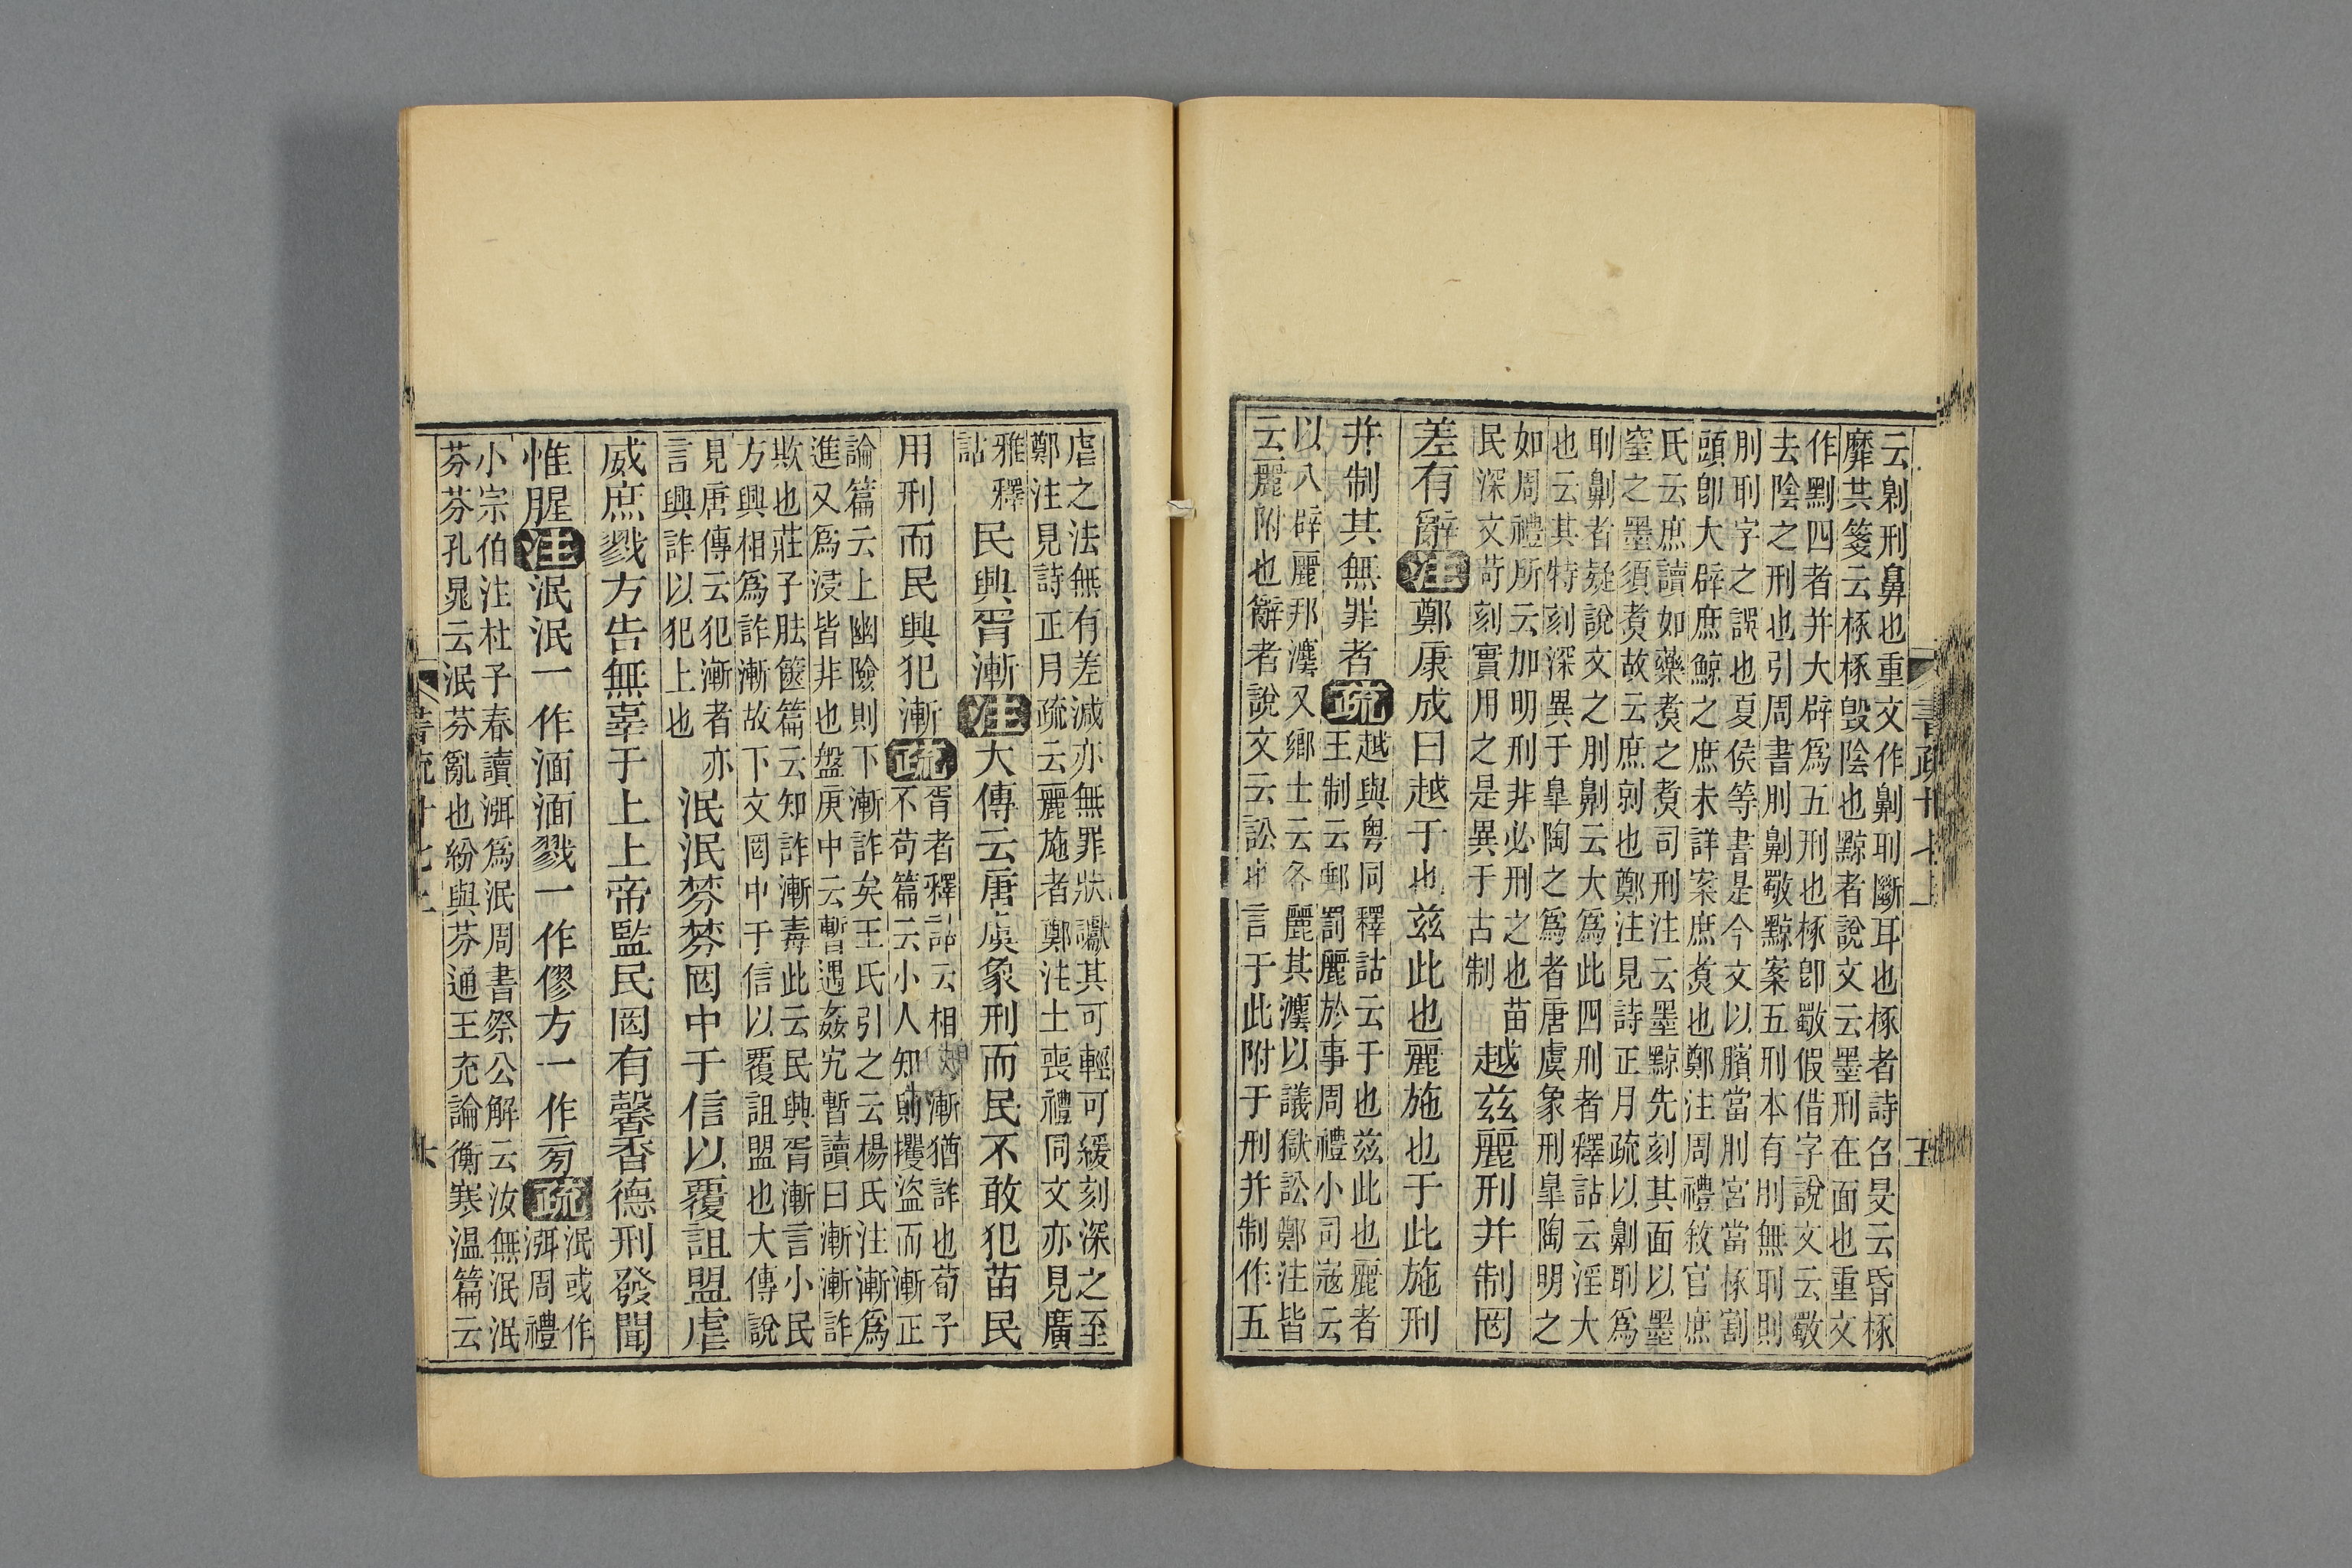 云劓刑鼻也重文作劓刵斷耳也椓者詩召旻云昏椓
靡共箋云椓椓毁陰也黥者說文云墨刑在面也重文
作剠四者并大辟爲五刑也椓卽斀假借字說文云斀
去陰之刑也引周書刖劓斀黥案五刑本有刖無刵則
刖刵字之誤也夏侯等書是今文以臏當刖宮當椓割
頭卽大辟庶鯨之庶未詳案庶煑也鄭注周禮敘官庶
氏云庶讀如藥煑之煑司刑注云墨黥先刻其面以墨
窒之墨須煑故云庶剠也鄭注見詩正月疏以劓刵爲
刵劓者疑說文之刖劓云大爲此四刑者釋詁云淫大
也云其特刻深異于皐陶之爲者唐虞象刑皐陶明之
如周禮所云加明刑非必刑之也苗
民深文苛刻實用之是異于古制
越兹麗刑并制罔
差有辭注鄭康成曰越于也兹此也麗施也于此施刑
并制其無罪者疏
越與粤同釋詁云于也兹此也麗者
王制云郵罰麗於事周禮小司寇云
以八辟麗邦灋又鄉士云各麗其灋以議獄訟鄭注皆
云麗附也辭者說文云訟也言于此附于刑并制作五
書疏廿七上
五
虐之法無有差減亦無罪狀讞其可輕可緩刻深之至
鄭注見詩正月疏云麗施者鄭注士喪禮同文亦見廣
雅釋
詁
民興胥漸注大傳云唐虞象刑而民不敢犯苗民
用刑而民興犯漸疏
胥者釋詁云相也漸猶詐也荀子
不苟篇云小人知則攫盜而漸正
論篇云上幽險則下漸詐矣王氏引之云楊氏注漸爲
進又爲浸皆非也盤庚中云暫遇姦宄暫讀曰漸漸詐
欺也莊子胠篋篇云知詐漸毒此云民興胥漸言小民
方興相爲詐漸故下文罔中于信以覆詛盟也大傳說
見唐傳云犯漸者亦
言興詐以犯上也
泯泯棼棼罔中于信以覆詛盟虐
威庶戮方告無辜于上上帝監民罔有馨香德刑發聞
惟腥注泯泯一作湎湎戮一作僇方一作旁疏
泯或作
湎周禮
小宗伯注杜子春讀湎爲泯周書祭公解云汝無泯泯
芬芬孔晁云泯芬亂也紛與芬通王充論衡寒温篇云
書疏廿七上
六